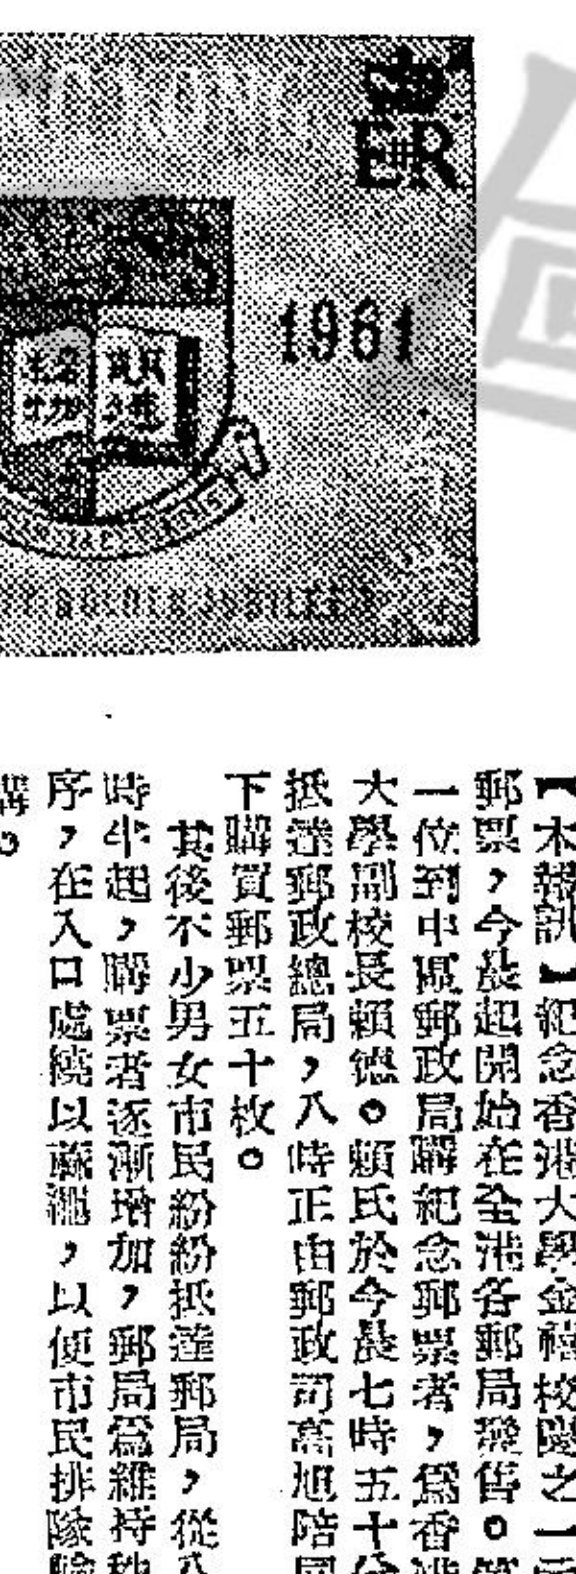 E II R
1961
GOLDEN JUBILEE
【本報訊】紀念香港大學金禧校慶之一元
郵票，今晨起開始在全港各郵局發售。第
一位到中區郵政局購紀念郵票者，爲香港
大學副校長賴德。賴氏於今晨七時五十分
抵達郵政總局，八時正由郵政司高旭陪同
下購買郵票五十枚。
其後不少男女市民紛紛抵達郵局，從八
時半起，購票者逐漸增加，郵局爲維持秩
序，在入口處繞以蔴繩，以便市民排隊輪
購。